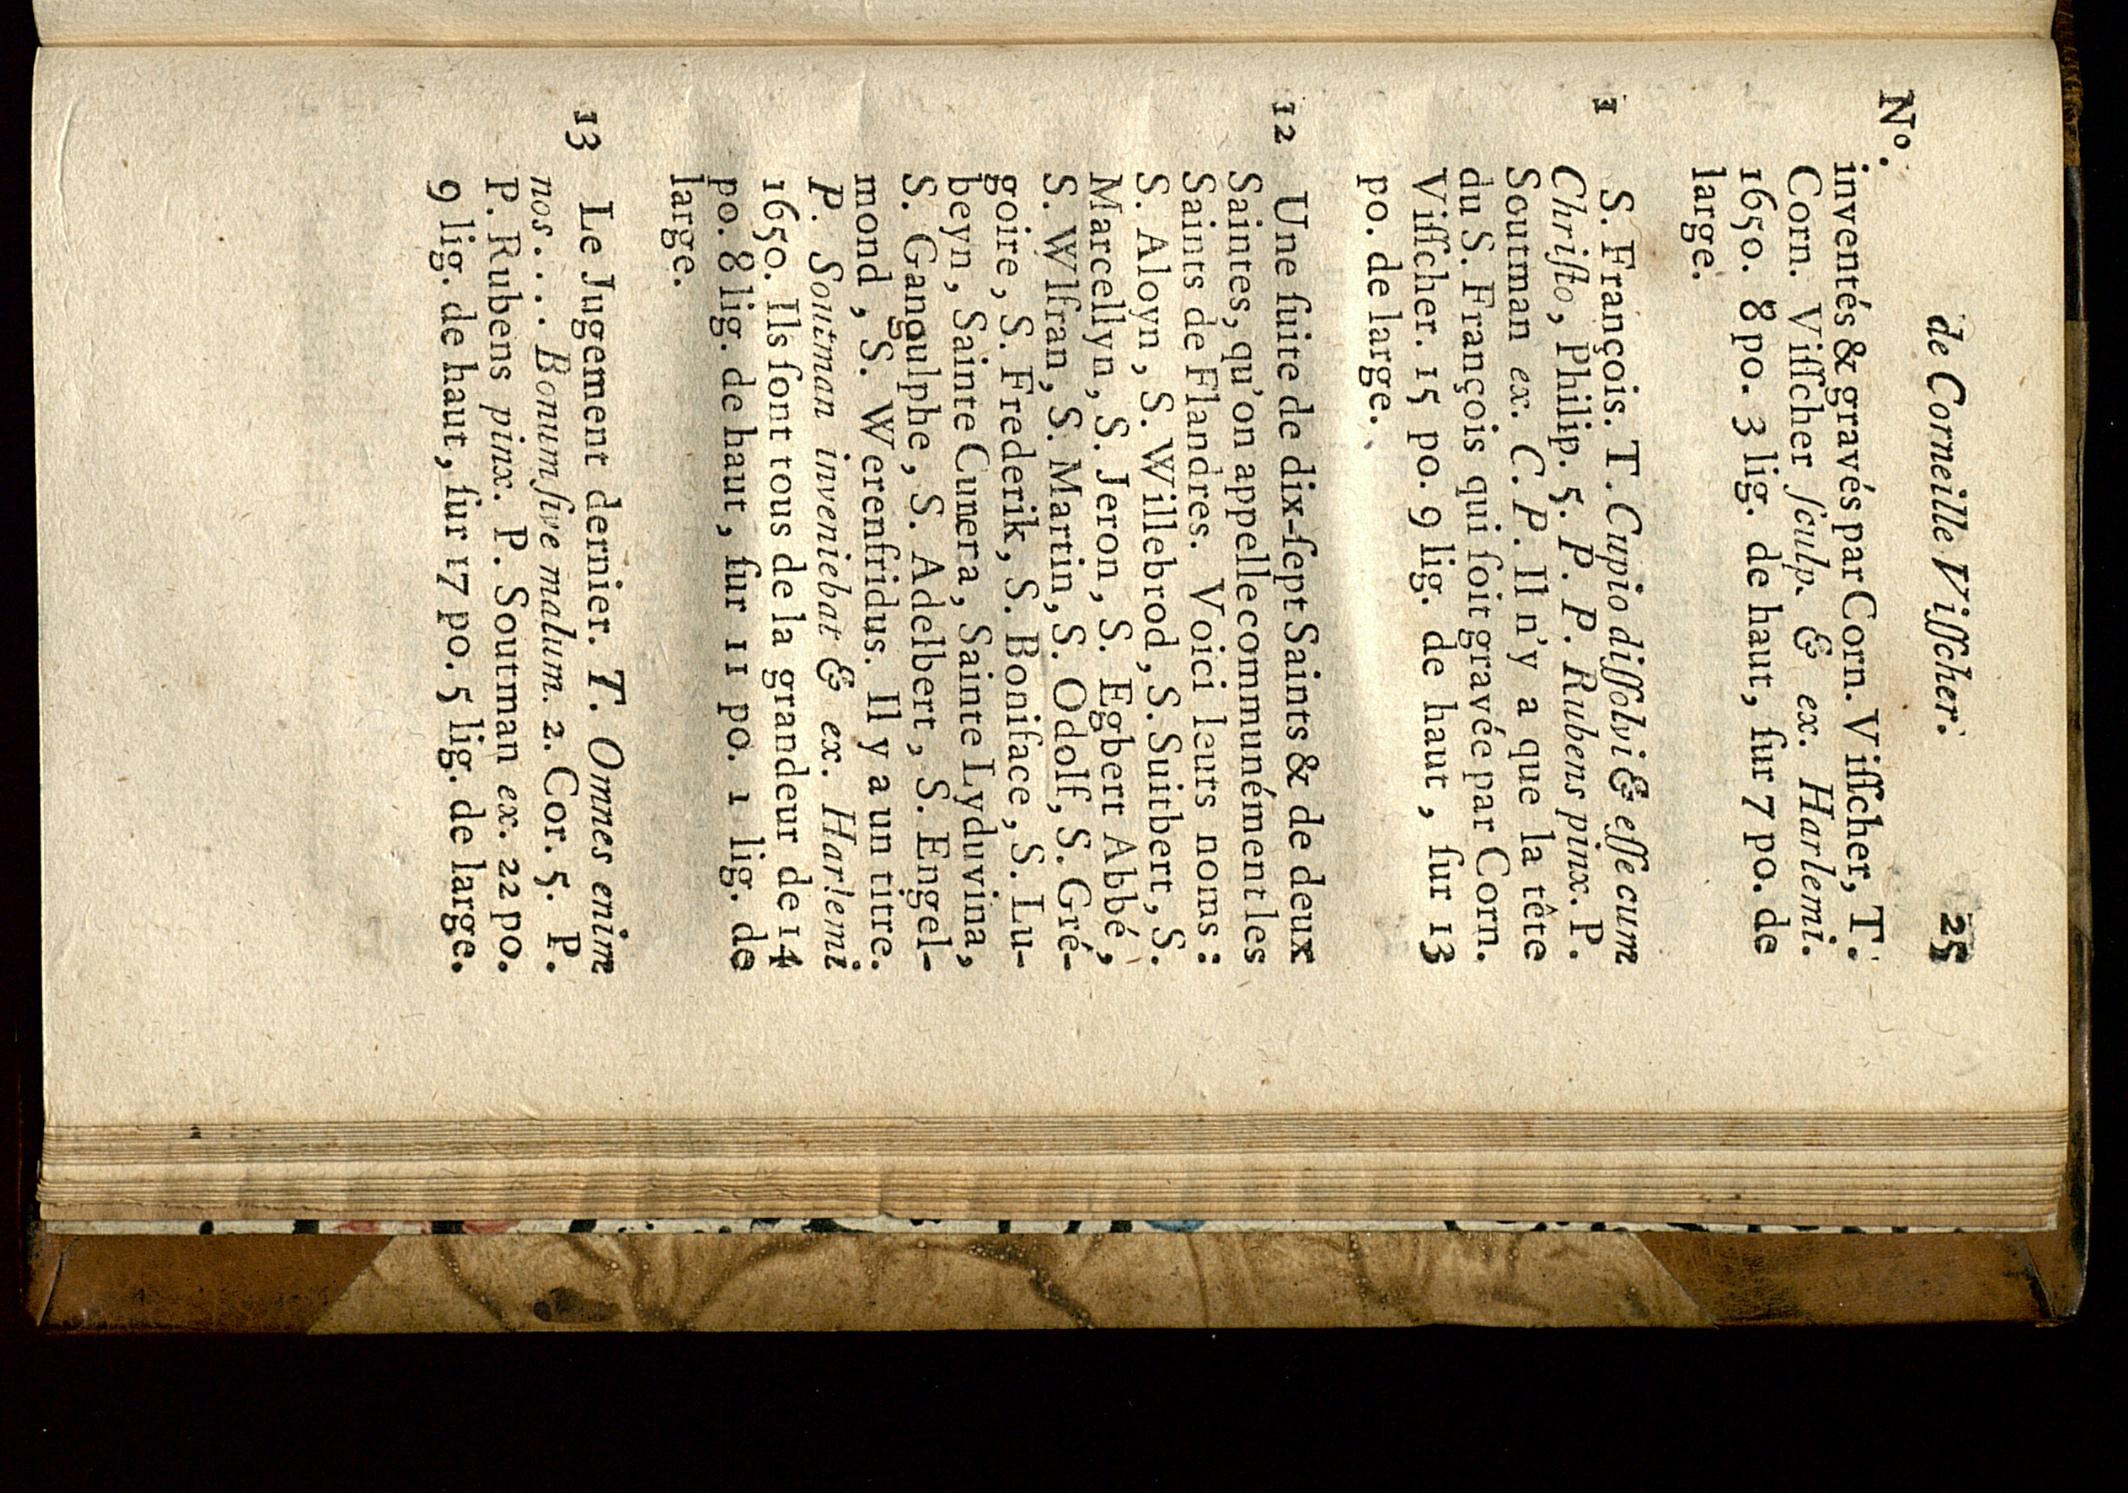 de Corneille Viſſcher. 25
N°.
inventés & gravés par Corn. Viſſcher, T.
Corn. Viſſcher ſculp. & ex. Harlemi.
1650. 8 po. 3 lig. de haut, ſur 7 po. de
large.
1 S. François. T. Cupio diſſolvi & eſſe cum
Chriſto, Philip. 5. P. P. Rubens pinx. P.
Soutman ex. C. P. Il n'y a que la tête
du S. François qui ſoit gravée par Corn.
Viſſcher. 15 po. 9 lig. de haut, ſur 13
po. de large.
12 Une ſuite de dix-ſept Saints & de deux
Saintes, qu'on appelle communément les
Saints de Flandres. Voici leurs noms:
S. Aloyn, S. Willebrod, S. Suitbert, S.
Marcellyn, S. Jeron, S. Egbert Abbé,
S. Wlfran, S. Martin, S. Odolf, S. Gré-
goire, S. Frederik, S. Boniface, S. Lu-
beyn, Sainte Cunera, Sainte Lyduvina,
S. Gangulphe, S. Adelbert, S. Engel-
mond, S. Werenfridus. Il y a un titre.
P. Soutman inveniebat & ex. Harlemi
1650. Ils ſont tous de la grandeur de 14
po. 8 lig. de haut, ſur 11 po. 1 lig. de
large.
13 Le Jugement dernier. T. Omnes enim
nos.... Bonum ſive malum. 2. Cor. 5. P.
P. Rubens pinx. P. Soutman ex. 22 po.
9 lig. de haut, ſur 17 po. 5 lig. de large.